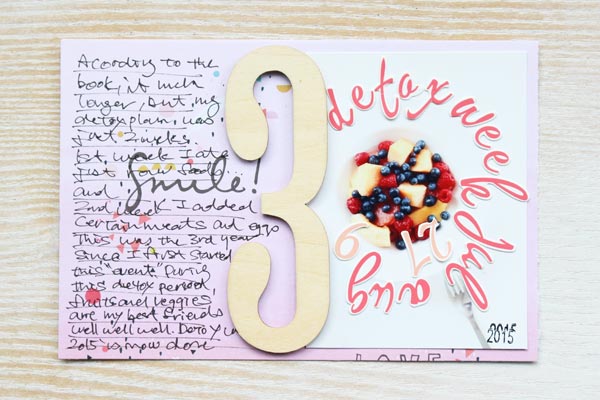 Acording to the
book, it much
longer, but my
detox plan was
just 2weeks.
1st week I ate
just raw
and
2nd week I added
Certain meats and eggs
This was the 3rd year
Since I first started
this "event". During
this detox period,
fruits and veggies
are my best friends
well well well. Detox
2015 is now done
Smile!
3
detox week Jul 27
aug 9
2015
LOVE